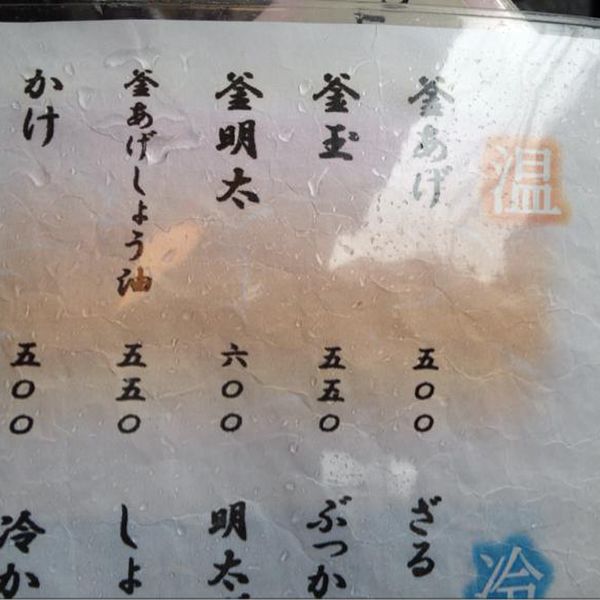 温
釜あげ 五〇〇
釜玉 五五〇
釜明太 六〇〇
釜あげしょう油 五五〇
かけ 五〇〇
冷
ざる
ぶっか
明太
しょ
冷か